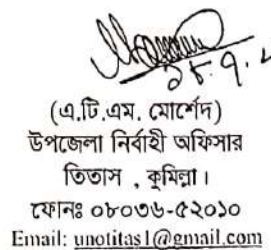 (এ.টি.এম. মোর্শেদ)
উপজেলা নির্বাহী অফিসার
তিতাস , কুমিল্লা।
ফোনঃ ০৮০৩৬-৫২০১০
Email: unotitas1@gmail.com